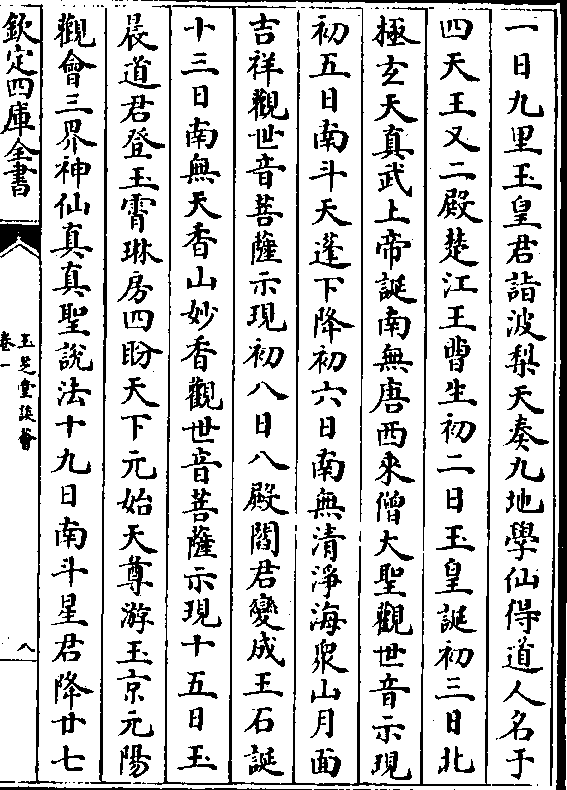 一日九里玉皇君詣波梨天奏九地學仙得道人名于
四天王又二殿楚江王曹生初二日玉皇誕初三日北
極玄天真武上帝誕南無唐西來僧大聖觀世音示現
初五日南斗天蓬下降初六日南無清淨海衆山月面
吉祥觀世音菩薩示現初八日八殿閻君變成王石誕
十三日南無天香山妙香觀世音菩薩示現十五日玉
晨道君登玉霄琳房四盼天下元始天尊游玉京元陽
觀會三界神仙真真聖說法十九日南斗星君降廿七
欽定四庫全書
玉芝堂談薈
卷一
八